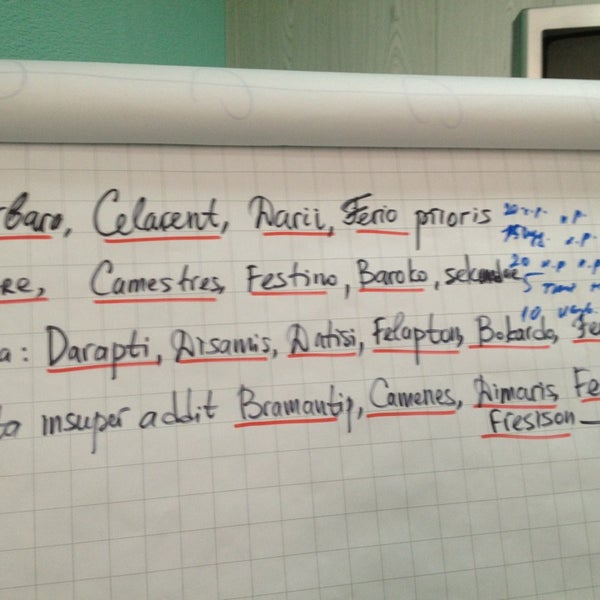 rbaro, Celacent, Darii, Ferio prioris
re, Camestres, Festino, Baroko, sekundae
a: Darapti, Disamis, Datisi, Felapton, Bokardo, Fe
ta insuper addit Bramantip, Camenes, Dimaris, Fe
Fresison
20
20
5
10